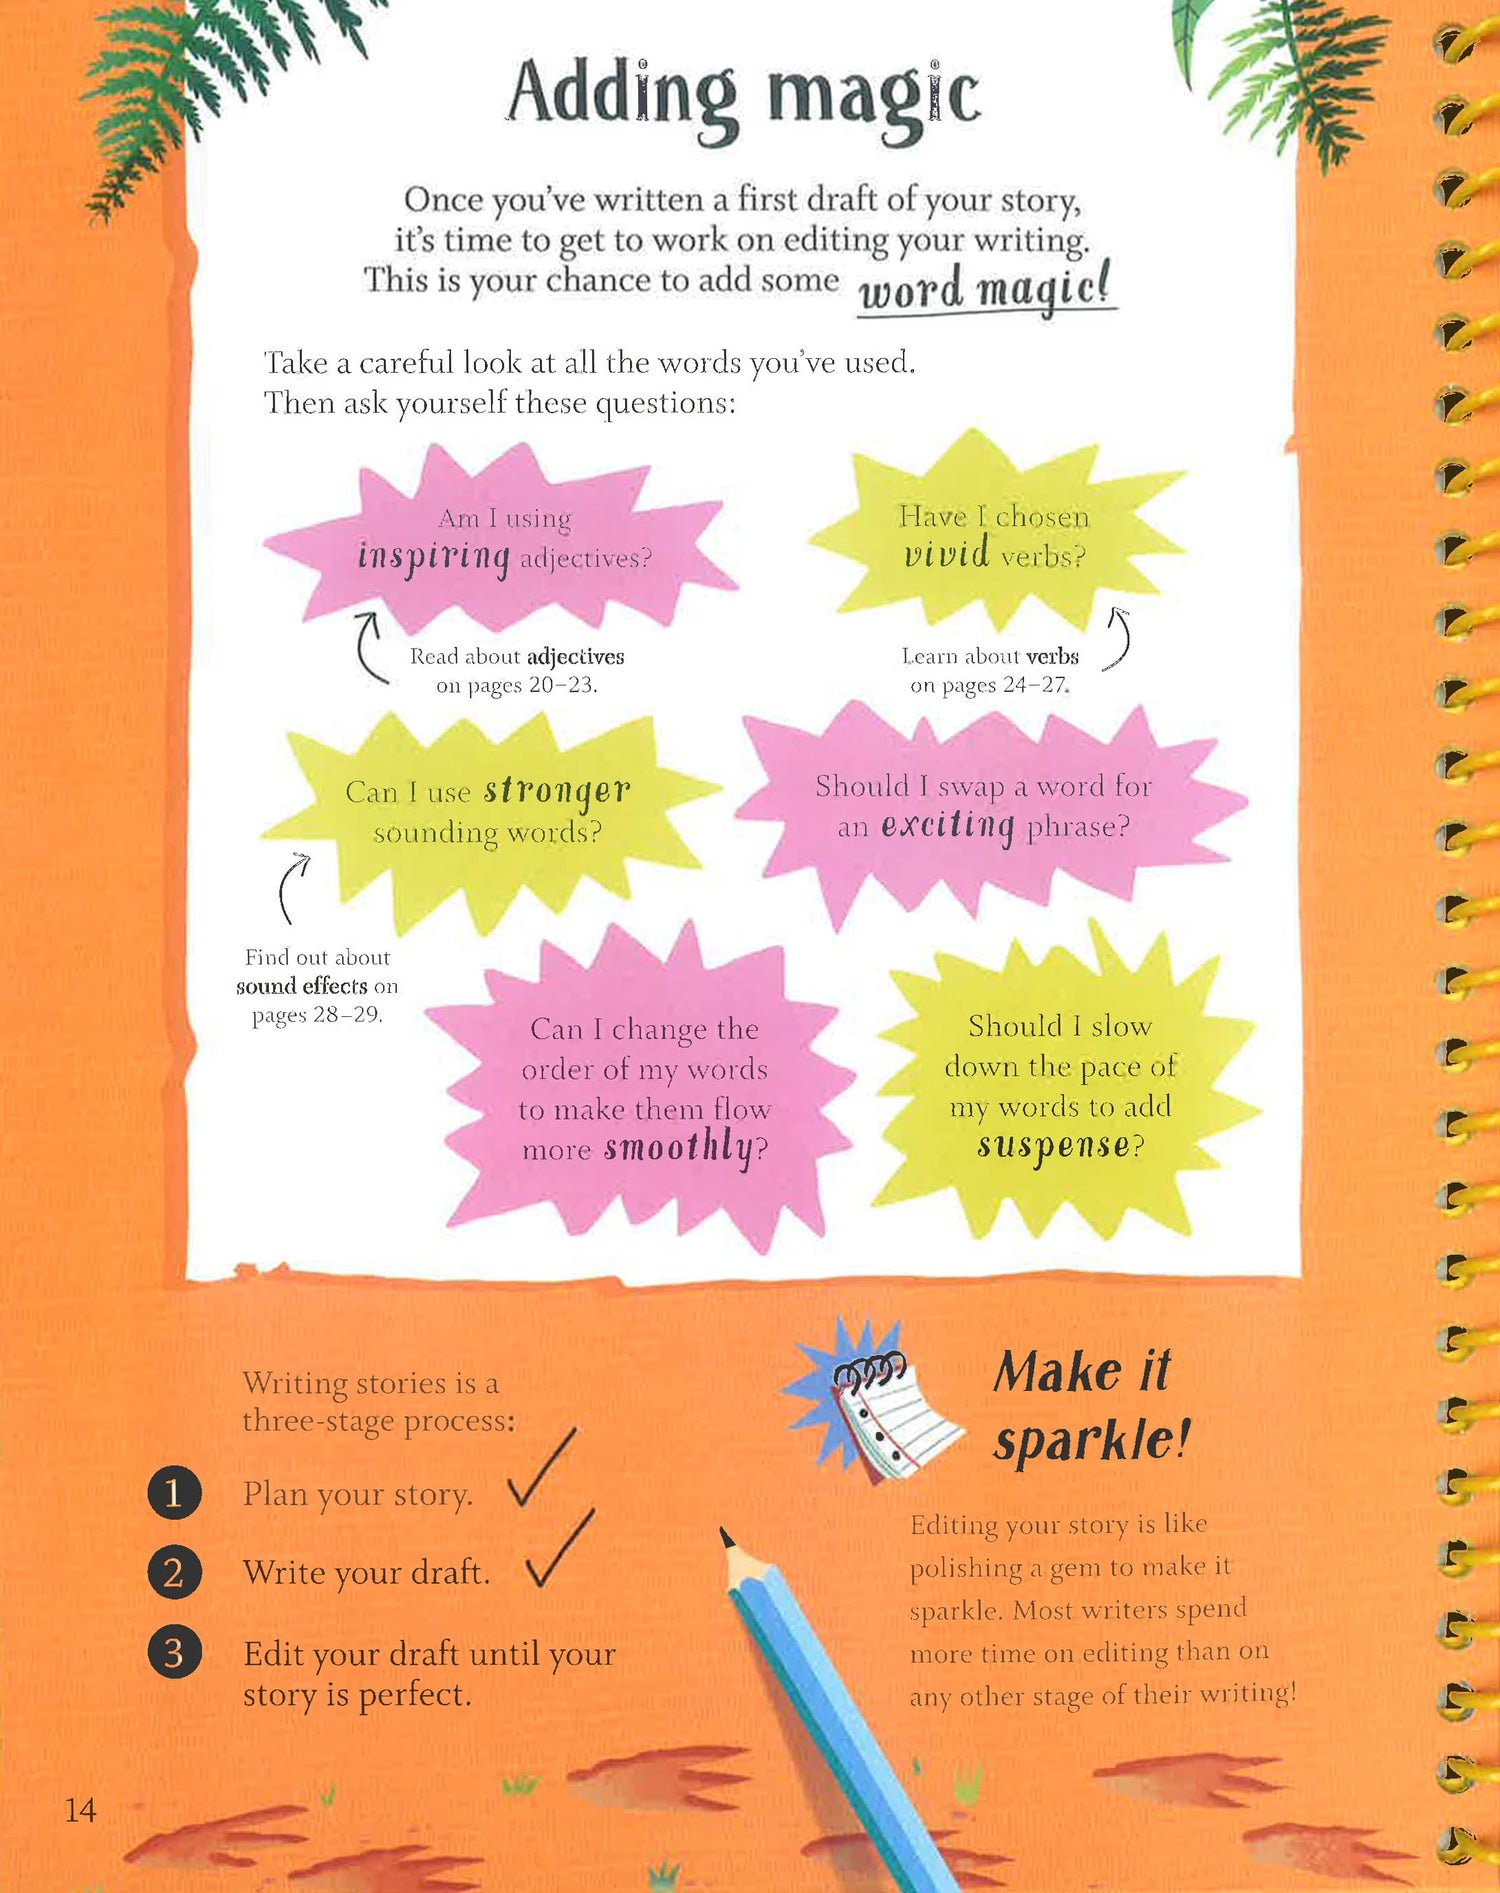 Adding magic
Once you've written a first draft of your story,
it's time to get to work on editing your writing.
This is your chance to add some word magic!
Take a careful look at all the words you've used.
Then ask yourself these questions:
Am I using
inspiring adjectives?
Read about adjectives
on pages 20–23.
Have I chosen
vivid verbs?
Learn about verbs
on pages 24–27.
Can I use stronger
sounding words?
Find out about
sound effects on
pages 28–29.
Should I swap a word for
an exciting phrase?
Can I change the
order of my words
to make them flow
more smoothly?
Should I slow
down the pace of
my words to add
suspense?
Writing stories is a
three-stage process:
1 Plan your story.
2 Write your draft.
3 Edit your draft until your
story is perfect.
Make it
sparkle!
Editing your story is like
polishing a gem to make it
sparkle. Most writers spend
more time on editing than on
any other stage of their writing!
14